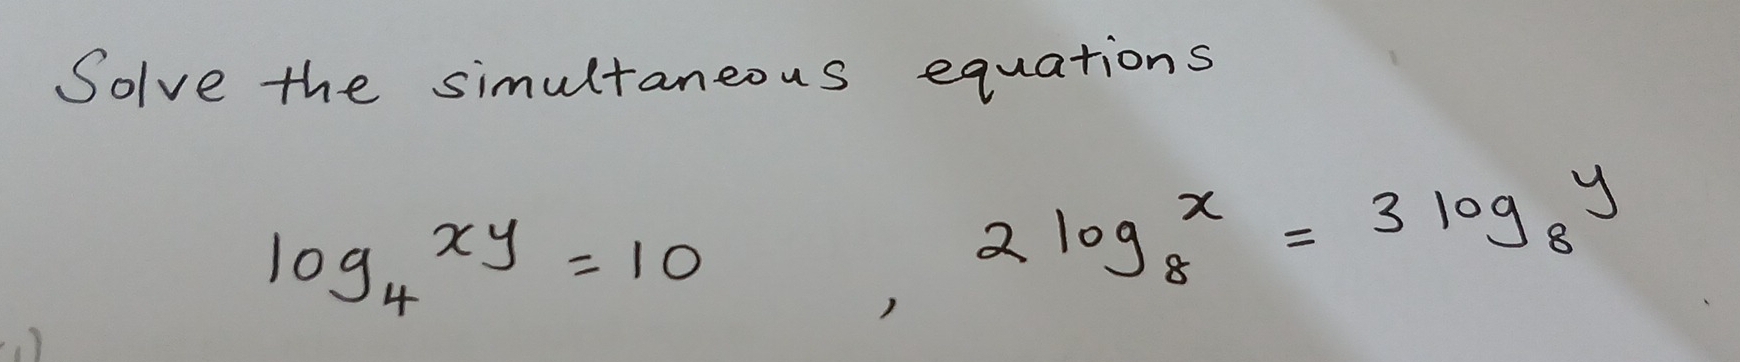 Solve the simultaneous equations
log₄ xy = 10 , 2 log₈ x = 3 log₈ y